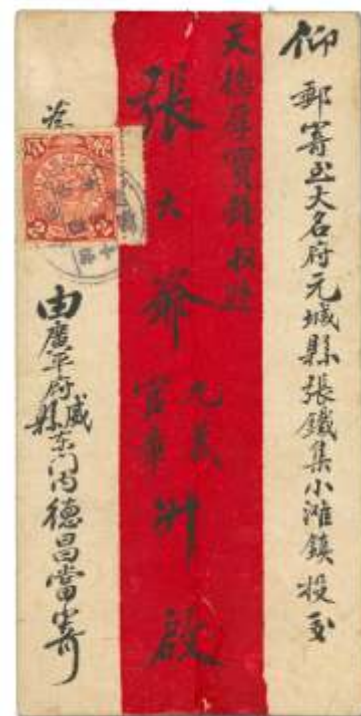 仰
郵寄至大名府元城縣張鐵集小灘鎮投交
天德
寶號收
張大爺官章元義升啟
由廣平府威縣东门内德昌當寄